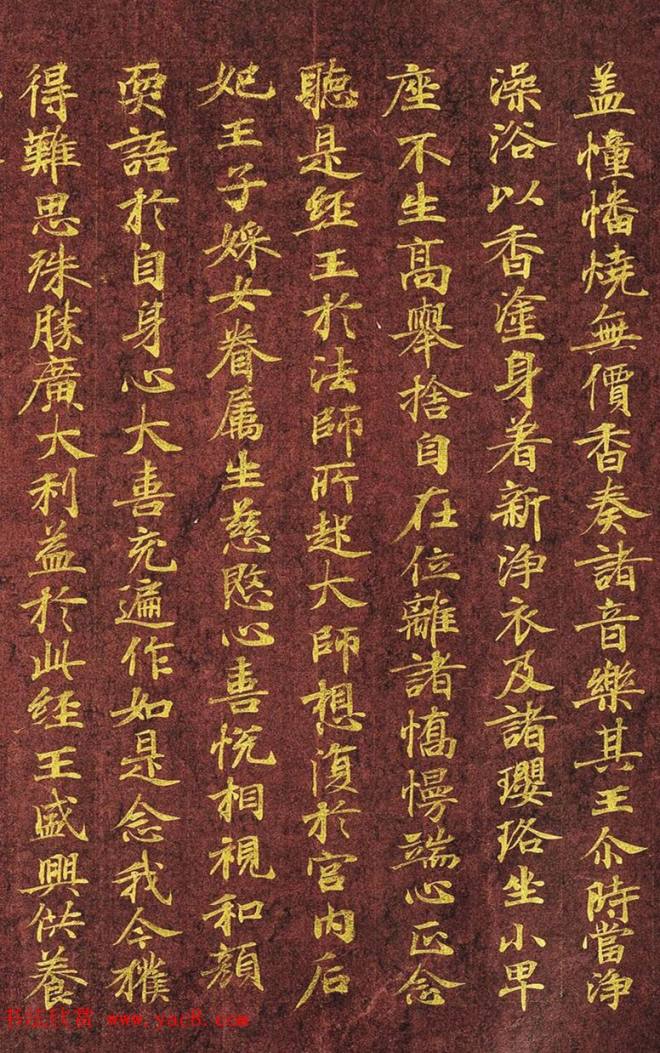 盖憧憣燒無價香奏諸音樂其王尒時當淨
澡浴以香塗身著新淨衣及諸瓔珞坐小卑
座不生髙舉捨自在位離諸憍慢端心正念
聽是經王於法師所起大師想復於宫内后
妃王子婇女眷属生慈愍心喜悅相視和顔
耎語於自身心大喜充遍作如是念我今獲
得難思殊勝廣大利益於此經王盛興供養
书法欣赏 www.yac8.com